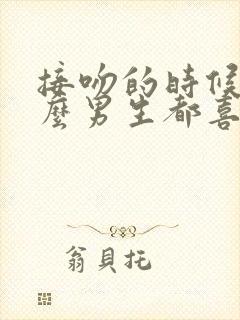 接吻的時候
麼男生都喜
翁貝托